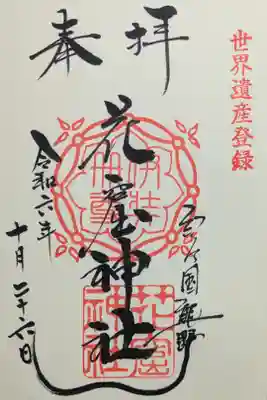 世界遺産登録
奉拝
國熊野
花窟神社
令和六年
十月二十六日
伊弉
冊尊
花窟
神社